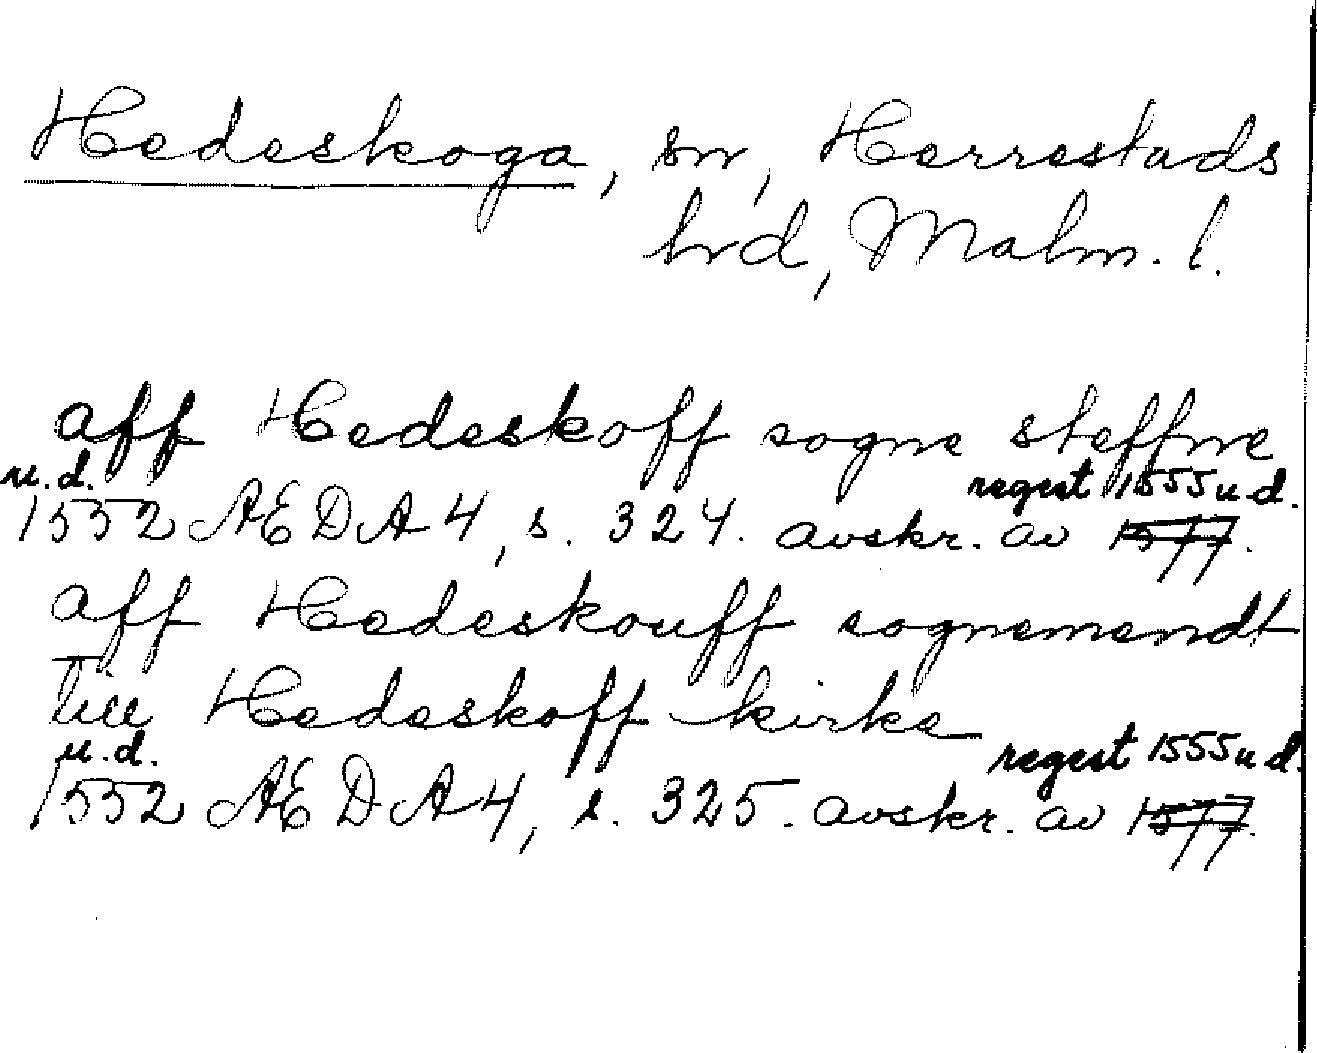 Hedeskoga, sn, Herrestads
hrd, Malm. l.
aff Hedeskoff sogne steffne
u.d. regest 1555 u.d.
1552 ÆDA 4, s. 324. avskr. av 1577.
aff Hedeskouff sognemendt
till Hedeskoff kirke
u.d. regest 1555 u.d.
1552 ÆDA 4, s. 325. avskr. av 1577.